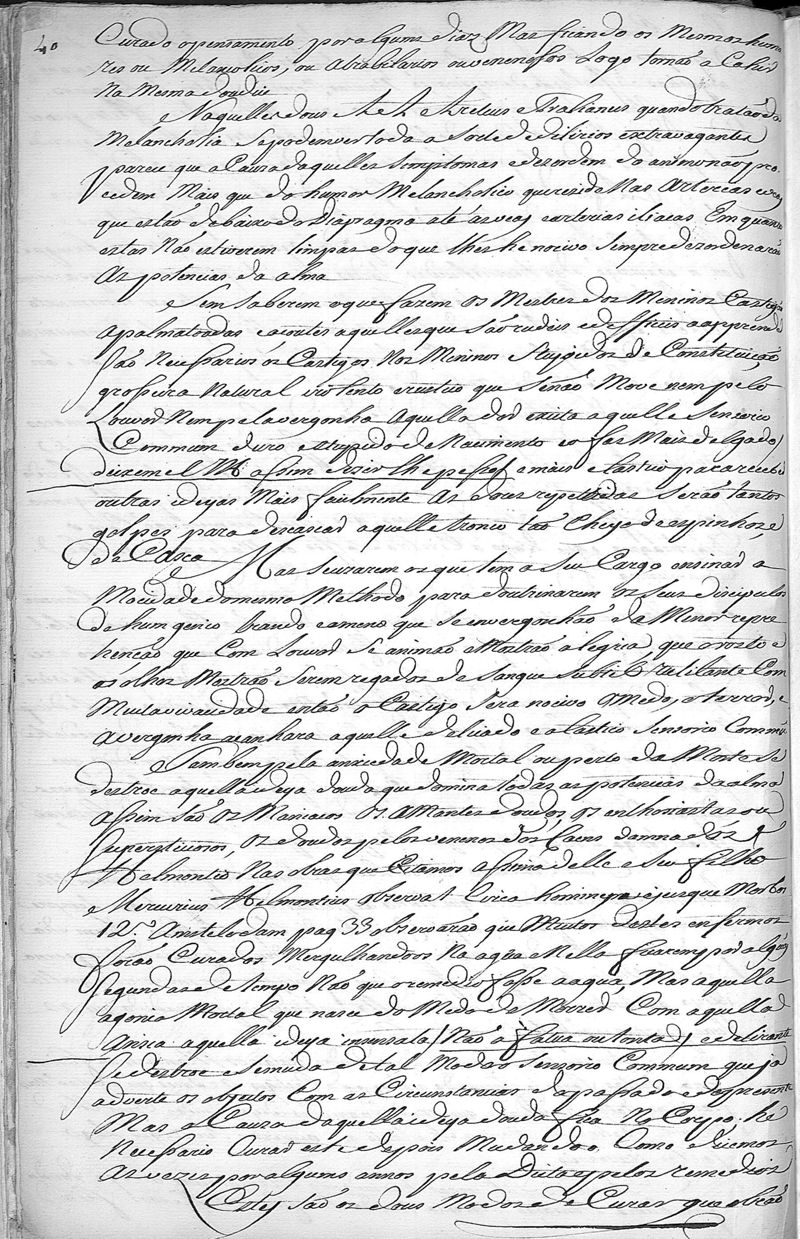 40
Curado o pensamento por alguns dias Mas ficando os Mesmos humo
res ou Melancolicos, ou Atrabilarios ou venenosos Logo tornaõ a Cahir
Na Mesma doudice
Naquelles dous A A Areteus e Trallianus quando trataõ da
Melancholia se podem ver toda a Sorte de delirios extravagantes
parece que a Causa daquelles Simptomas e desordem do animo naõ pro
cedem Mais que do humor Melancholico que reside Nas Arterias e veas
que estaõ debaixo do Diapragma até as veas e arterias iliacas Em quanto
estas Naõ estiverem limpas do que lhes he nocivo sempre desordenaraõ
As potencias da alma
e Sem Saberem o que fazem os Mestres dos Meninos Castigaõ
a palmatoadas e acoutes aquelles que saõ rudes e defficeis a aprender
Saõ Necessarios os Castigos Nos Meninos Rygidos de Constituiçaõ
grosseira Natural violento e rustico que se naõ Move nem pelo
Louvor Nem pela vergonha Aquella dor exita aquelle Sensorio
Commum duro estupido de Nacimento e o faz Mais delgado,
deixem el M. assim dizir lhe pessoa e mais elastico para receber
outras ideyas Mais facilmente As dores repettidas seraõ tantos
golpes para descascar aquelle tronco taõ Cheyo de espinhos e
de Casca Mas se uzarem os que tem a Seu Cargo ensinar a
Mocidade do mesmo Methodo para doutrinarem os seus discipulos
de hum genio brando e ameno que se envergonhaõ da Menor repre
hençaõ que Com Louvor Se animaõ e Mostraõ alegria, que o rosto e
os olhos Mostraõ Serem regados de Sangue Subtil rutilante Com
Muita vivacidade entaõ o Castigo Sera nocivo o Medo, o terror, e
A vergonha acanhara aquelle delicado e elastico Sensorio Commũ
e Tambem pela anxiedade Mortal ou perto da Morte Se
destroe aquella ideya douda que domina todas as potencias da alma
assim saõ os Maniacos os Amantes doudos, os enthosiastas ou
Superstitiosos, os doudos pelo veneno dos Caens damnados
Helmontio Nas obras que Citamos assima delle e Seu filho
Mercurius Helmontius observat. Circa hominem ejusque Morbos
12.º Amstelodam pag 33 observaraõ que Muitos destes enfermos
foraõ Curados Mergulhandoos Na agua e Nella ficarem por algũs
segundos de tempo Naõ que o remedio fosse a agua, Mas aquella
agonia Mortal que nasce do Medo de Morrer Com aquella
Ansia aquella ideya insensata / Naõ a falva ou tonta / e delirante
se destroe e Se muda de tal Modo o Sensorio Commum que ja
adverte os objectos Com as Circunstancias do passado e do presente
Mas a Causa daquella ideya douda fica No Corpo, he
Necessario Curar este depois Mudando o Como dicemos
As vezes por alguns annos pela Dieta e pelos remedios
Estes saõ os dous Modos de Curar que obraõ